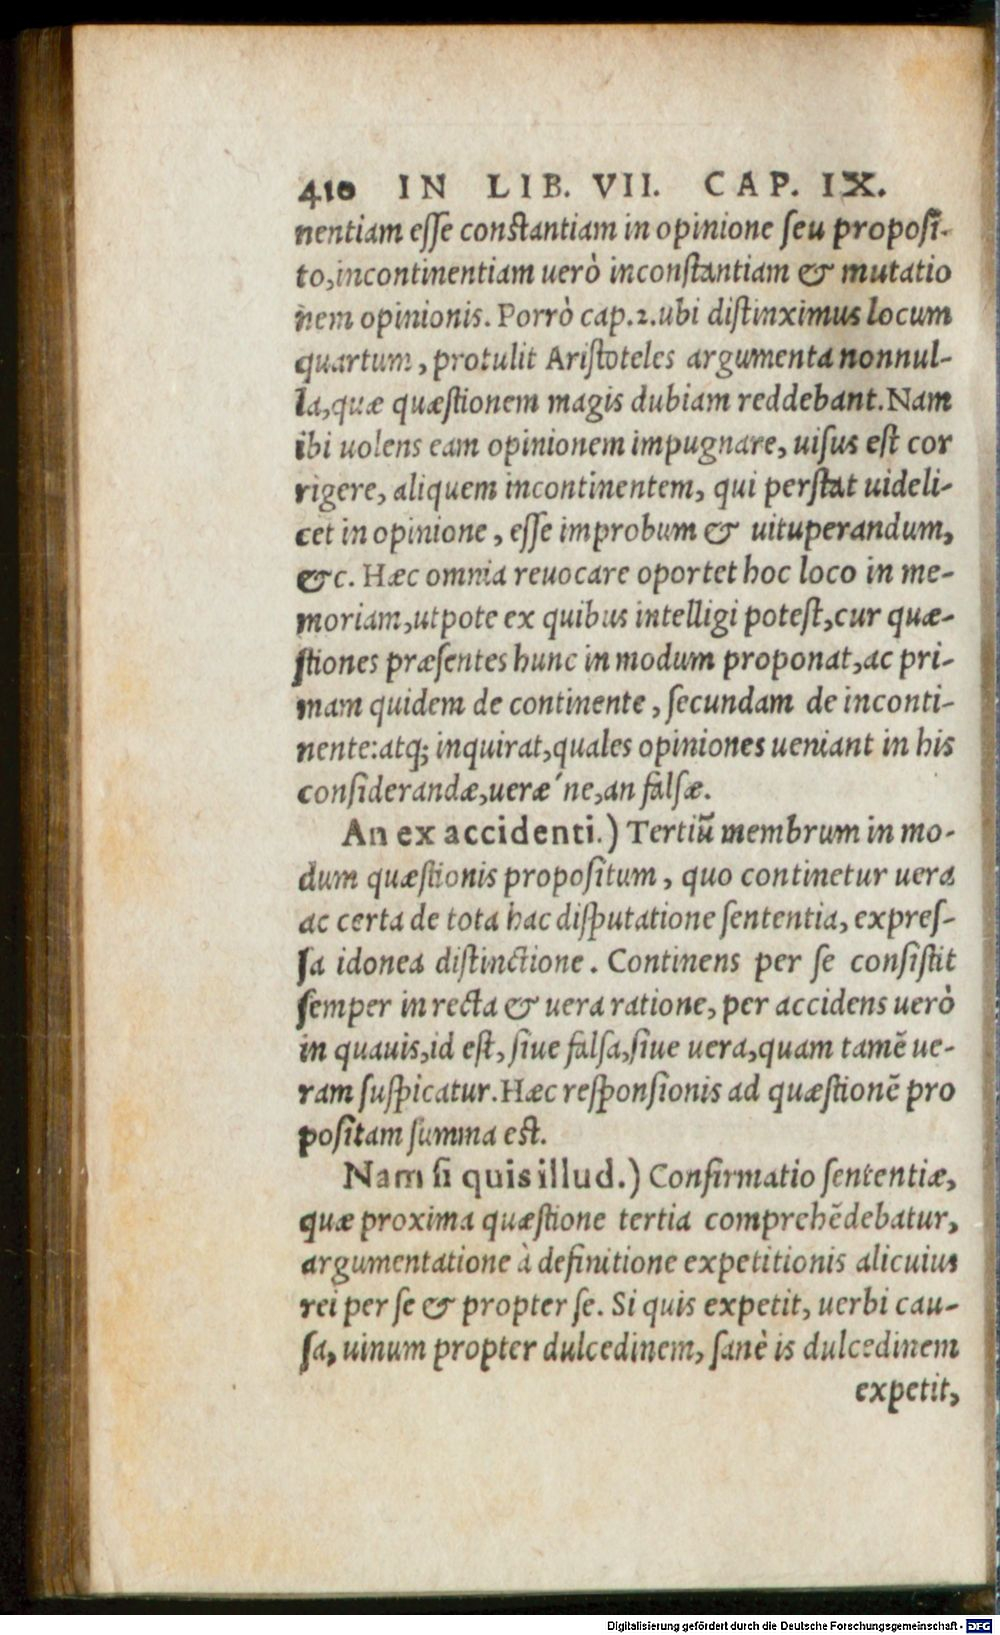 410 IN LIB. VII. CAP. IX.
nentiam eſſe conſtantiam in opinione ſeu propoſi-
to, incontinentiam uerò inconſtantiam & mutatio
nem opinionis. Porrò cap. 2. ubi diſtinximus locum
quartum, protulit Ariſtoteles argumenta nonnul-
la, quæ quæſtionem magis dubiam reddebant. Nam
ibi uolens eam opinionem impugnare, uiſus eſt cor
rigere, aliquem incontinentem, qui perſtat uideli-
cet in opinione, eſſe improbum & uituperandum,
&c. Hæc omnia reuocare oportet hoc loco in me-
moriam, utpote ex quibus intelligi poteſt, cur quæ-
ſtiones præſentes hunc in modum proponat, ac pri-
mam quidem de continente, ſecundam de inconti-
nente: atq; inquirat, quales opiniones ueniant in his
conſiderandæ, ueræ´ne, an falſæ.
An ex accidenti.) Tertiũ membrum in mo-
dum quæſtionis propoſitum, quo continetur uera
ac certa de tota hac diſputatione ſententia, expreſ-
ſa idonea diſtinctione. Continens per ſe conſiſtit
ſemper in recta & uera ratione, per accidens uerò
in quauis, id eſt, ſiue falſa, ſiue uera, quam tamẽ ue-
ram ſuſpicatur. Hæc reſponſionis ad quæſtionẽ pro
poſitam ſumma eſt.
Nam ſi quis illud.) Confirmatio ſententiæ,
quæ proxima quæſtione tertia comprehẽdebatur,
argumentatione à definitione expetitionis alicuius
rei per ſe & propter ſe. Si quis expetit, uerbi cau-
ſa, uinum propter dulcedinem, ſanè is dulcedinem
expetit,
Digitalisierung gefördert durch die Deutsche Forschungsgemeinschaft - DFG